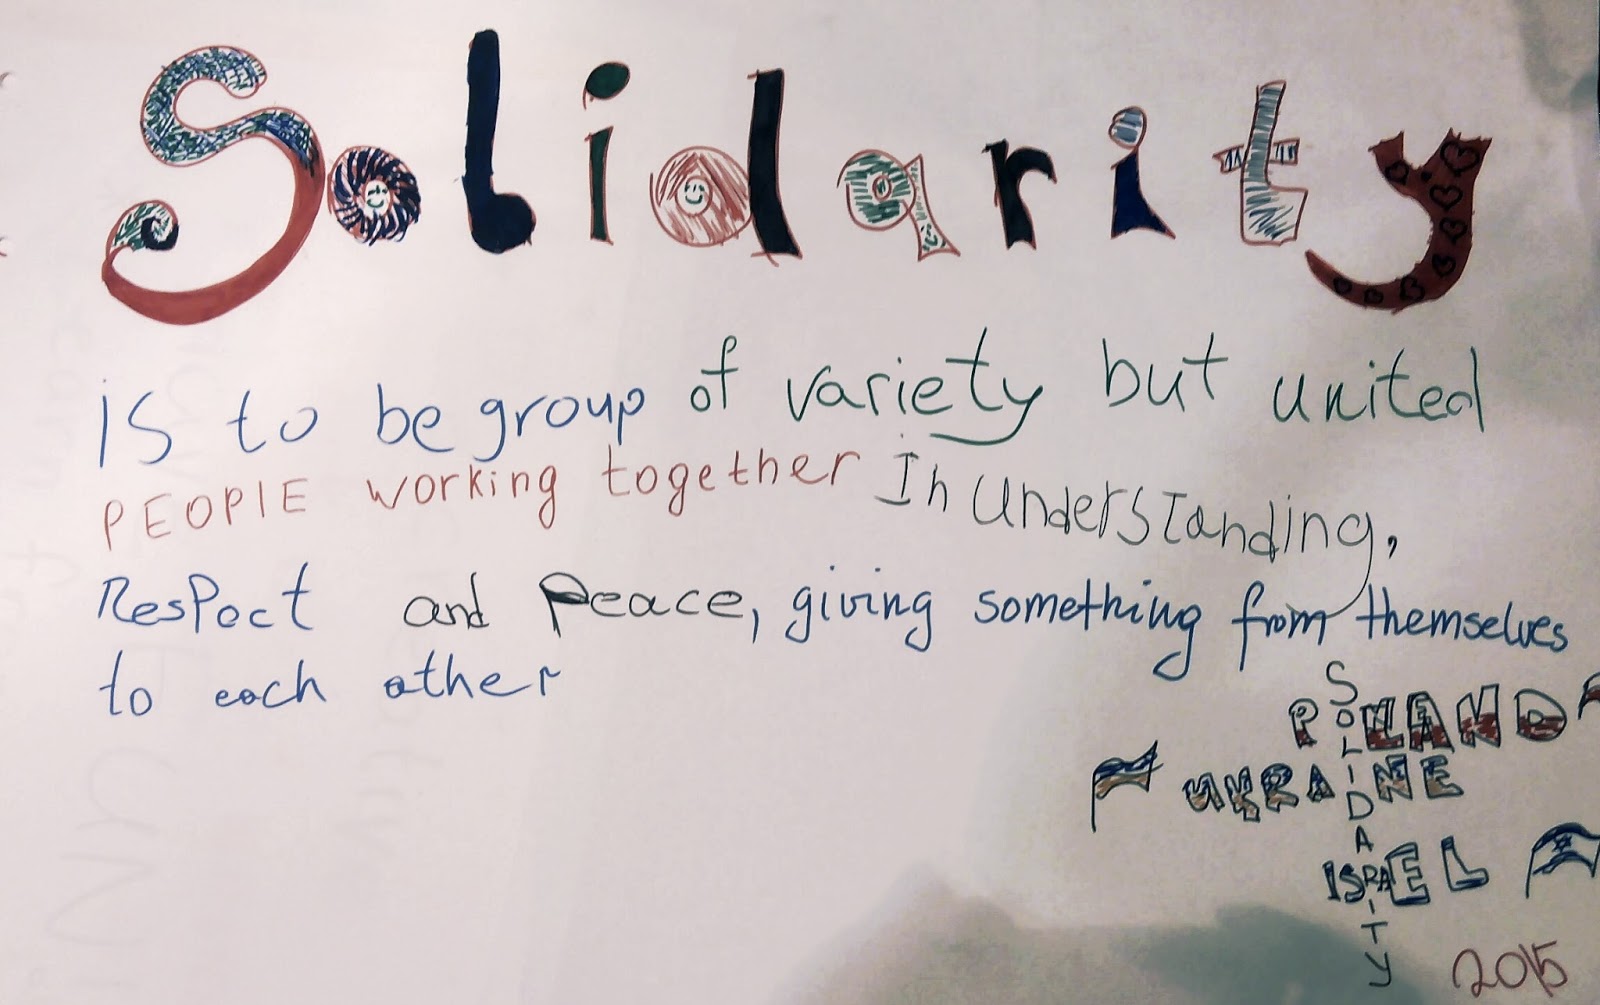 Solidarity
is to be group of variety but united
PEOPlE working together In understanding,
ResPect and Peace, giving something from themselves
to each other
SOLIDARITY
POLAND
UKRAINE
ISRAEL
2015